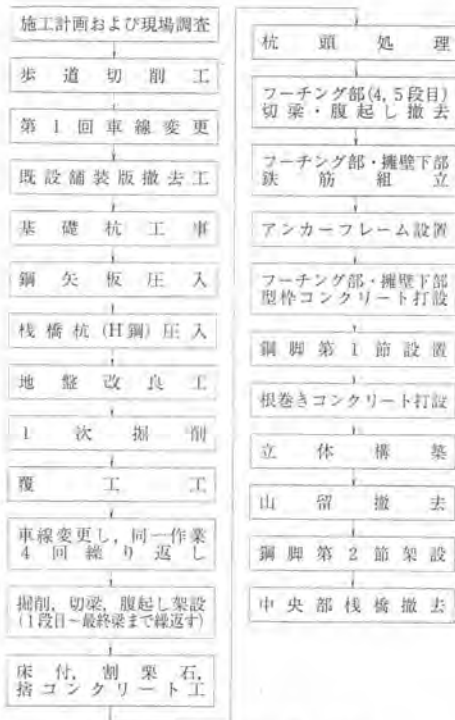 施工計画および現場調査
歩道切削工
第1回車線変更
既設舗装版撤去工
基礎杭工事
鋼矢板圧入
桟橋杭(H鋼)圧入
地盤改良工
1次掘削
覆工工
車線変更し,同一作業
4回繰り返し
掘削,切梁,腹起し架設
(1段目~最終梁まで繰返す)
床付,割栗石,
捨コンクリート工
杭頭処理
フーチング部(4,5段目)
切梁・腹起し撤去
フーチング部・擁壁下部
鉄筋組立
アンカーフレーム設置
フーチング部・擁壁下部
型枠コンクリート打設
鋼脚第1節設置
根巻きコンクリート打設
立体構築
山留撤去
鋼脚第2節架設
中央部桟橋撤去